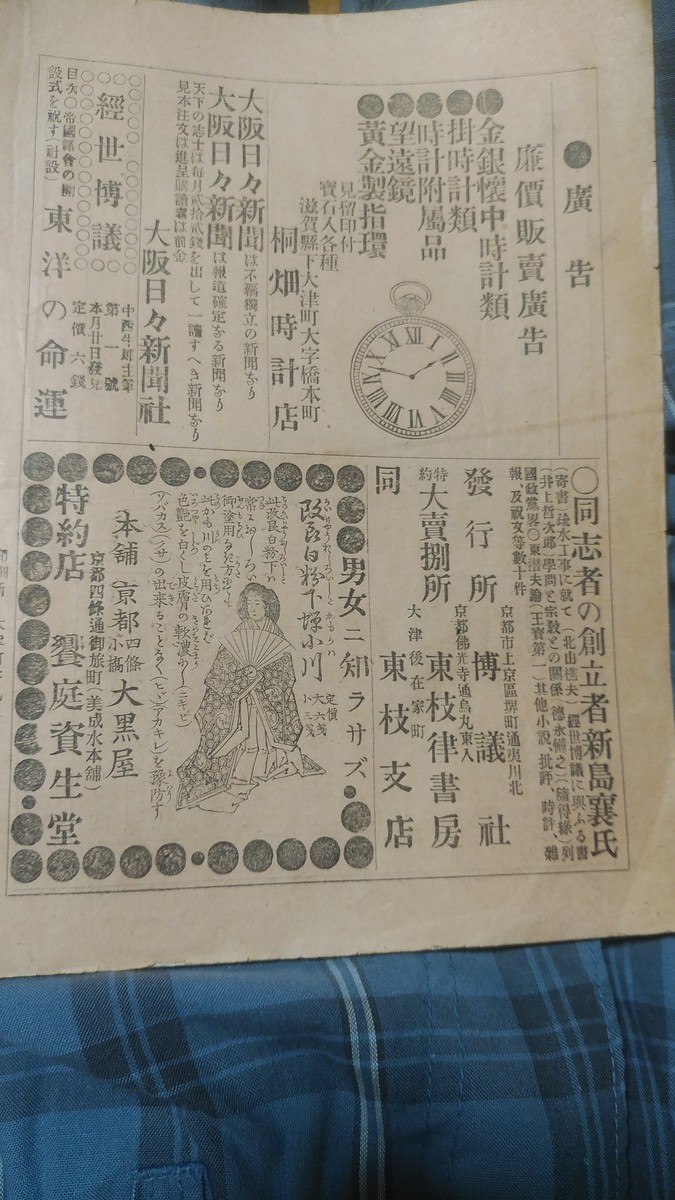 廣告
廉價販賣廣告
金銀懷中時計類
掛時計類
時計附屬品
望遠鏡
黃金製指環
見留印付
寶石入各種
滋賀縣下大津町大字橋本町
桐畑時計店
大阪日々新聞は不羈獨立の新聞なり
大阪日々新聞は報道確定なる新聞なり
天下の志士は每月貳拾貳錢を出して一讀すへき新聞なり
見本注文は進呈購讀者は前金
大阪日々新聞社
○○○○○○○○○○○
○經世博議○
○○○○○○○○○○○
中西牛郎主筆
第一號
本月廿日發兌
定價六錢
目次○帝國議會の開
設式を祝す(社說)
東洋の命運
○同志者の創立者新島襄氏
(寄書)疏水工事に就て(北山樵夫)經世博議に與ふる書
(井上哲次郎)學問と宗敎との關係(德永滿之)(隨得錄)列
國政黨畧○東潜夫論(王寶第一)其他小說、批評、時評、雜
報、及祝文等數十件
發行所
京都市上京區堺町通夷川北
博議社
特約
大賣捌所
京都佛光寺通烏丸東入
東枝律書房
同
大津後在家町
東枝支店
男女ニ知ラサズ
改良白粉下
小川
定價
大六錢
小三錢
此改良白粉下ハ
常におしろい
色艶を白くし皮膚の
(ソバカス)
の出来ることなく
を豫防す
本舖
京都
四條
小橋
大黑屋
特約店
京都四條通御旅町(美成水本舖)
饗庭資生堂